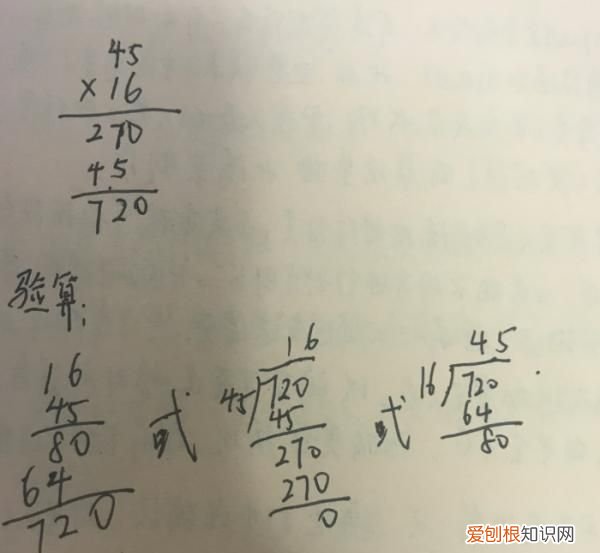 45
×16
270
45
720
验算:
16
45
80
64
720
或
16
45 720
45
270
270
0
或
45
16 720
64
80
爱刨根知识网